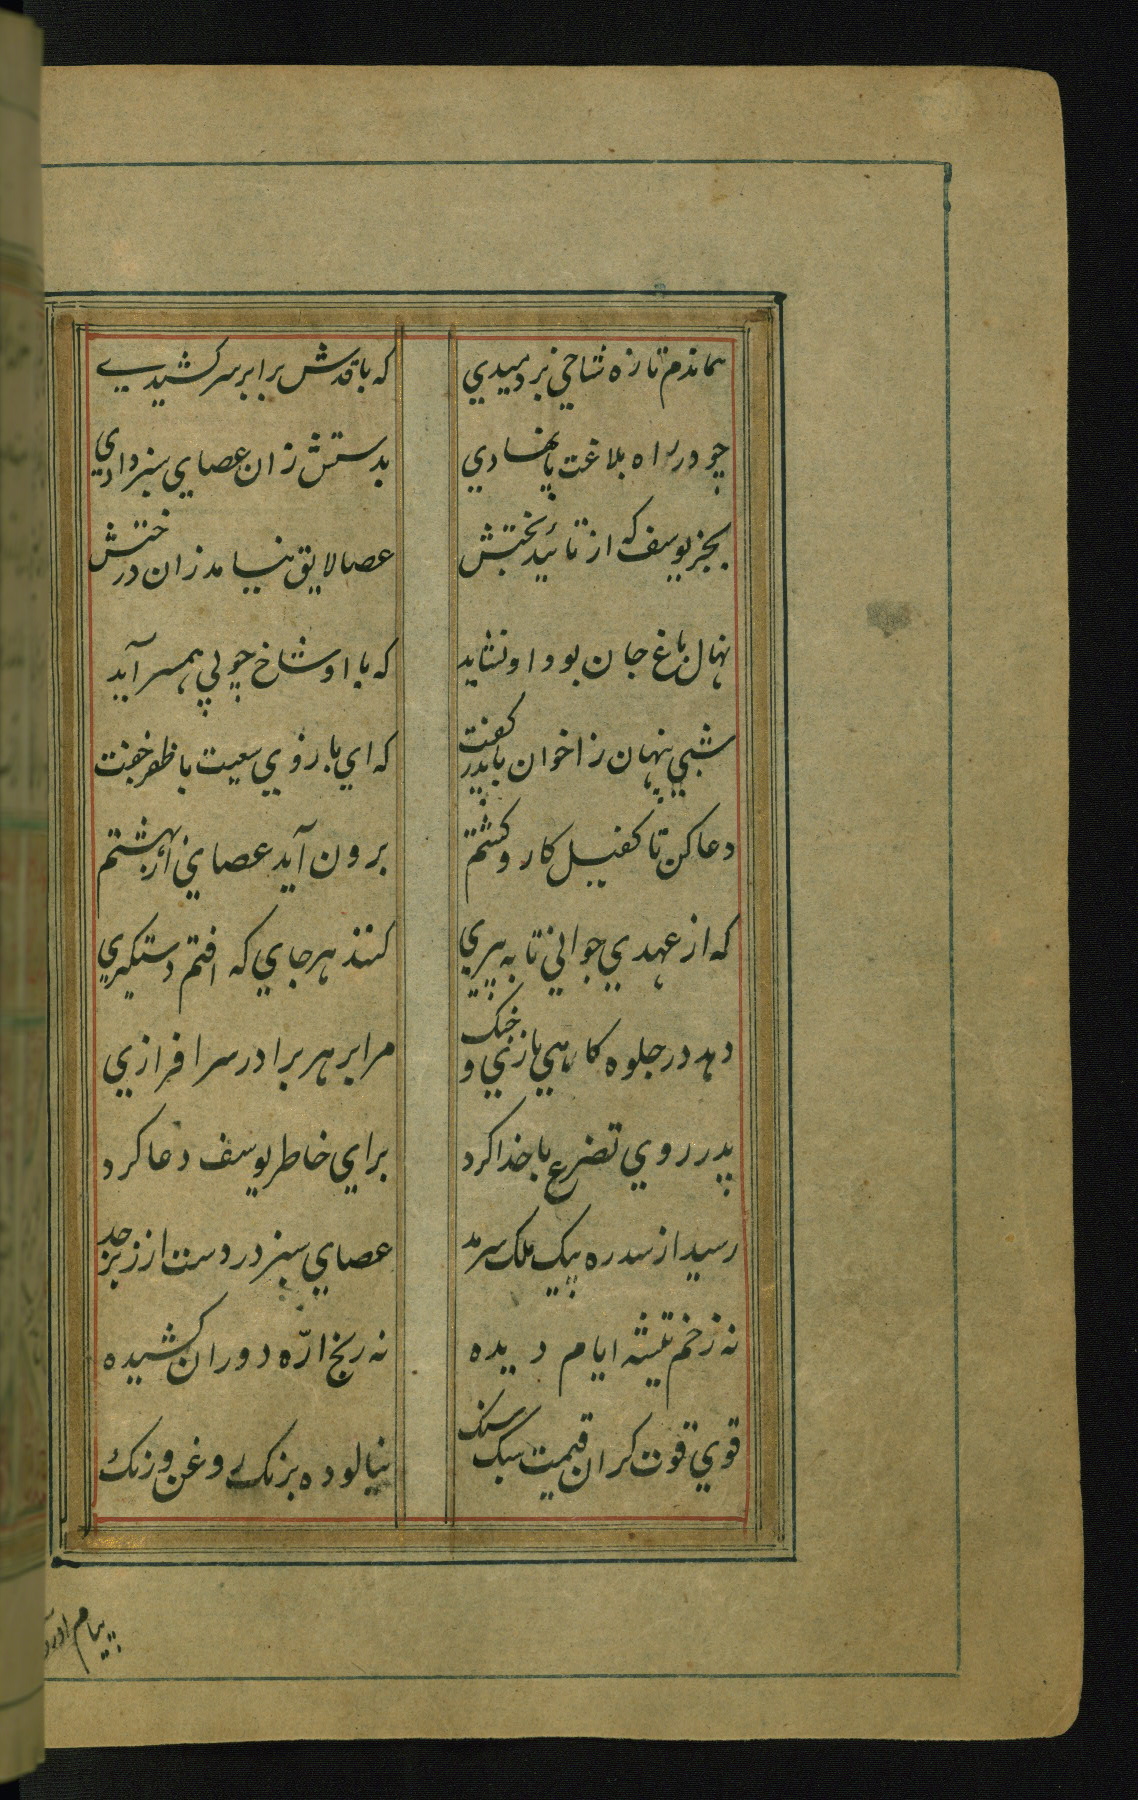 هماندم تازه شاخي بردميدي که باقدش برابر سر کشيدے
چو در راه بلاغت پا نهادي بدستش زان عصاي سبز دادي
بجز يوسف که از تائيد بختش عصا لايق نيامد زان درختش
نهال باغ جان بود او نشايد که با او شاخ چوپي همسر آيد
شبي پنهان ز اخوان با پدر کفت که اي بازوي سعيت با ظفر جفت
دعا کن تا کفيل کار و کشتم برون آيد عصاي از بهشتم
که از عهدي جواني تا به پيري کند هر جاي که افتم دستکيري
دهد در جلوه کاهي بازي و جنک مرا بر هر برادر سرافرازي
پدر روي تضرع با خدا کرد براي خاطر يوسف دعا کرد
رسيد از سدره پيک ملک سرمد عصاي سبز در دست از زبرجد
نه زخم تيشه ايام ديده نه رنج ارّه دوران کشيده
قوي قوت کران قيمت سبک سنک نيالوده بزنک روغن و زنک
پيام آورد